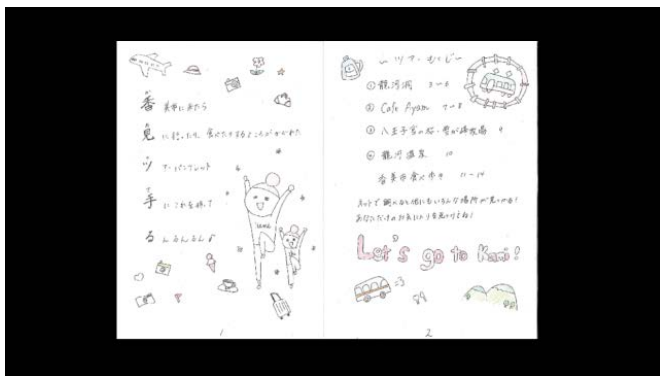 香 美市に来たら
見 に行ったり、食べたりするところがかかれた
ツ アーパンフレット
手 にこれを持って
る んるんるん♪
1
〜ツアーもくじ〜
① 龍河洞
② Cafe Ayam 7〜8
③ 八王子宮の桜・雪ヶ峰牧場 9
④ 龍河温泉 10
香美市食べ歩き 11〜14
ネットで調べると他にもいろんな場所が見つかる!
あなただけのお気に入りを見つけてね!
Let's go to Kami!
2